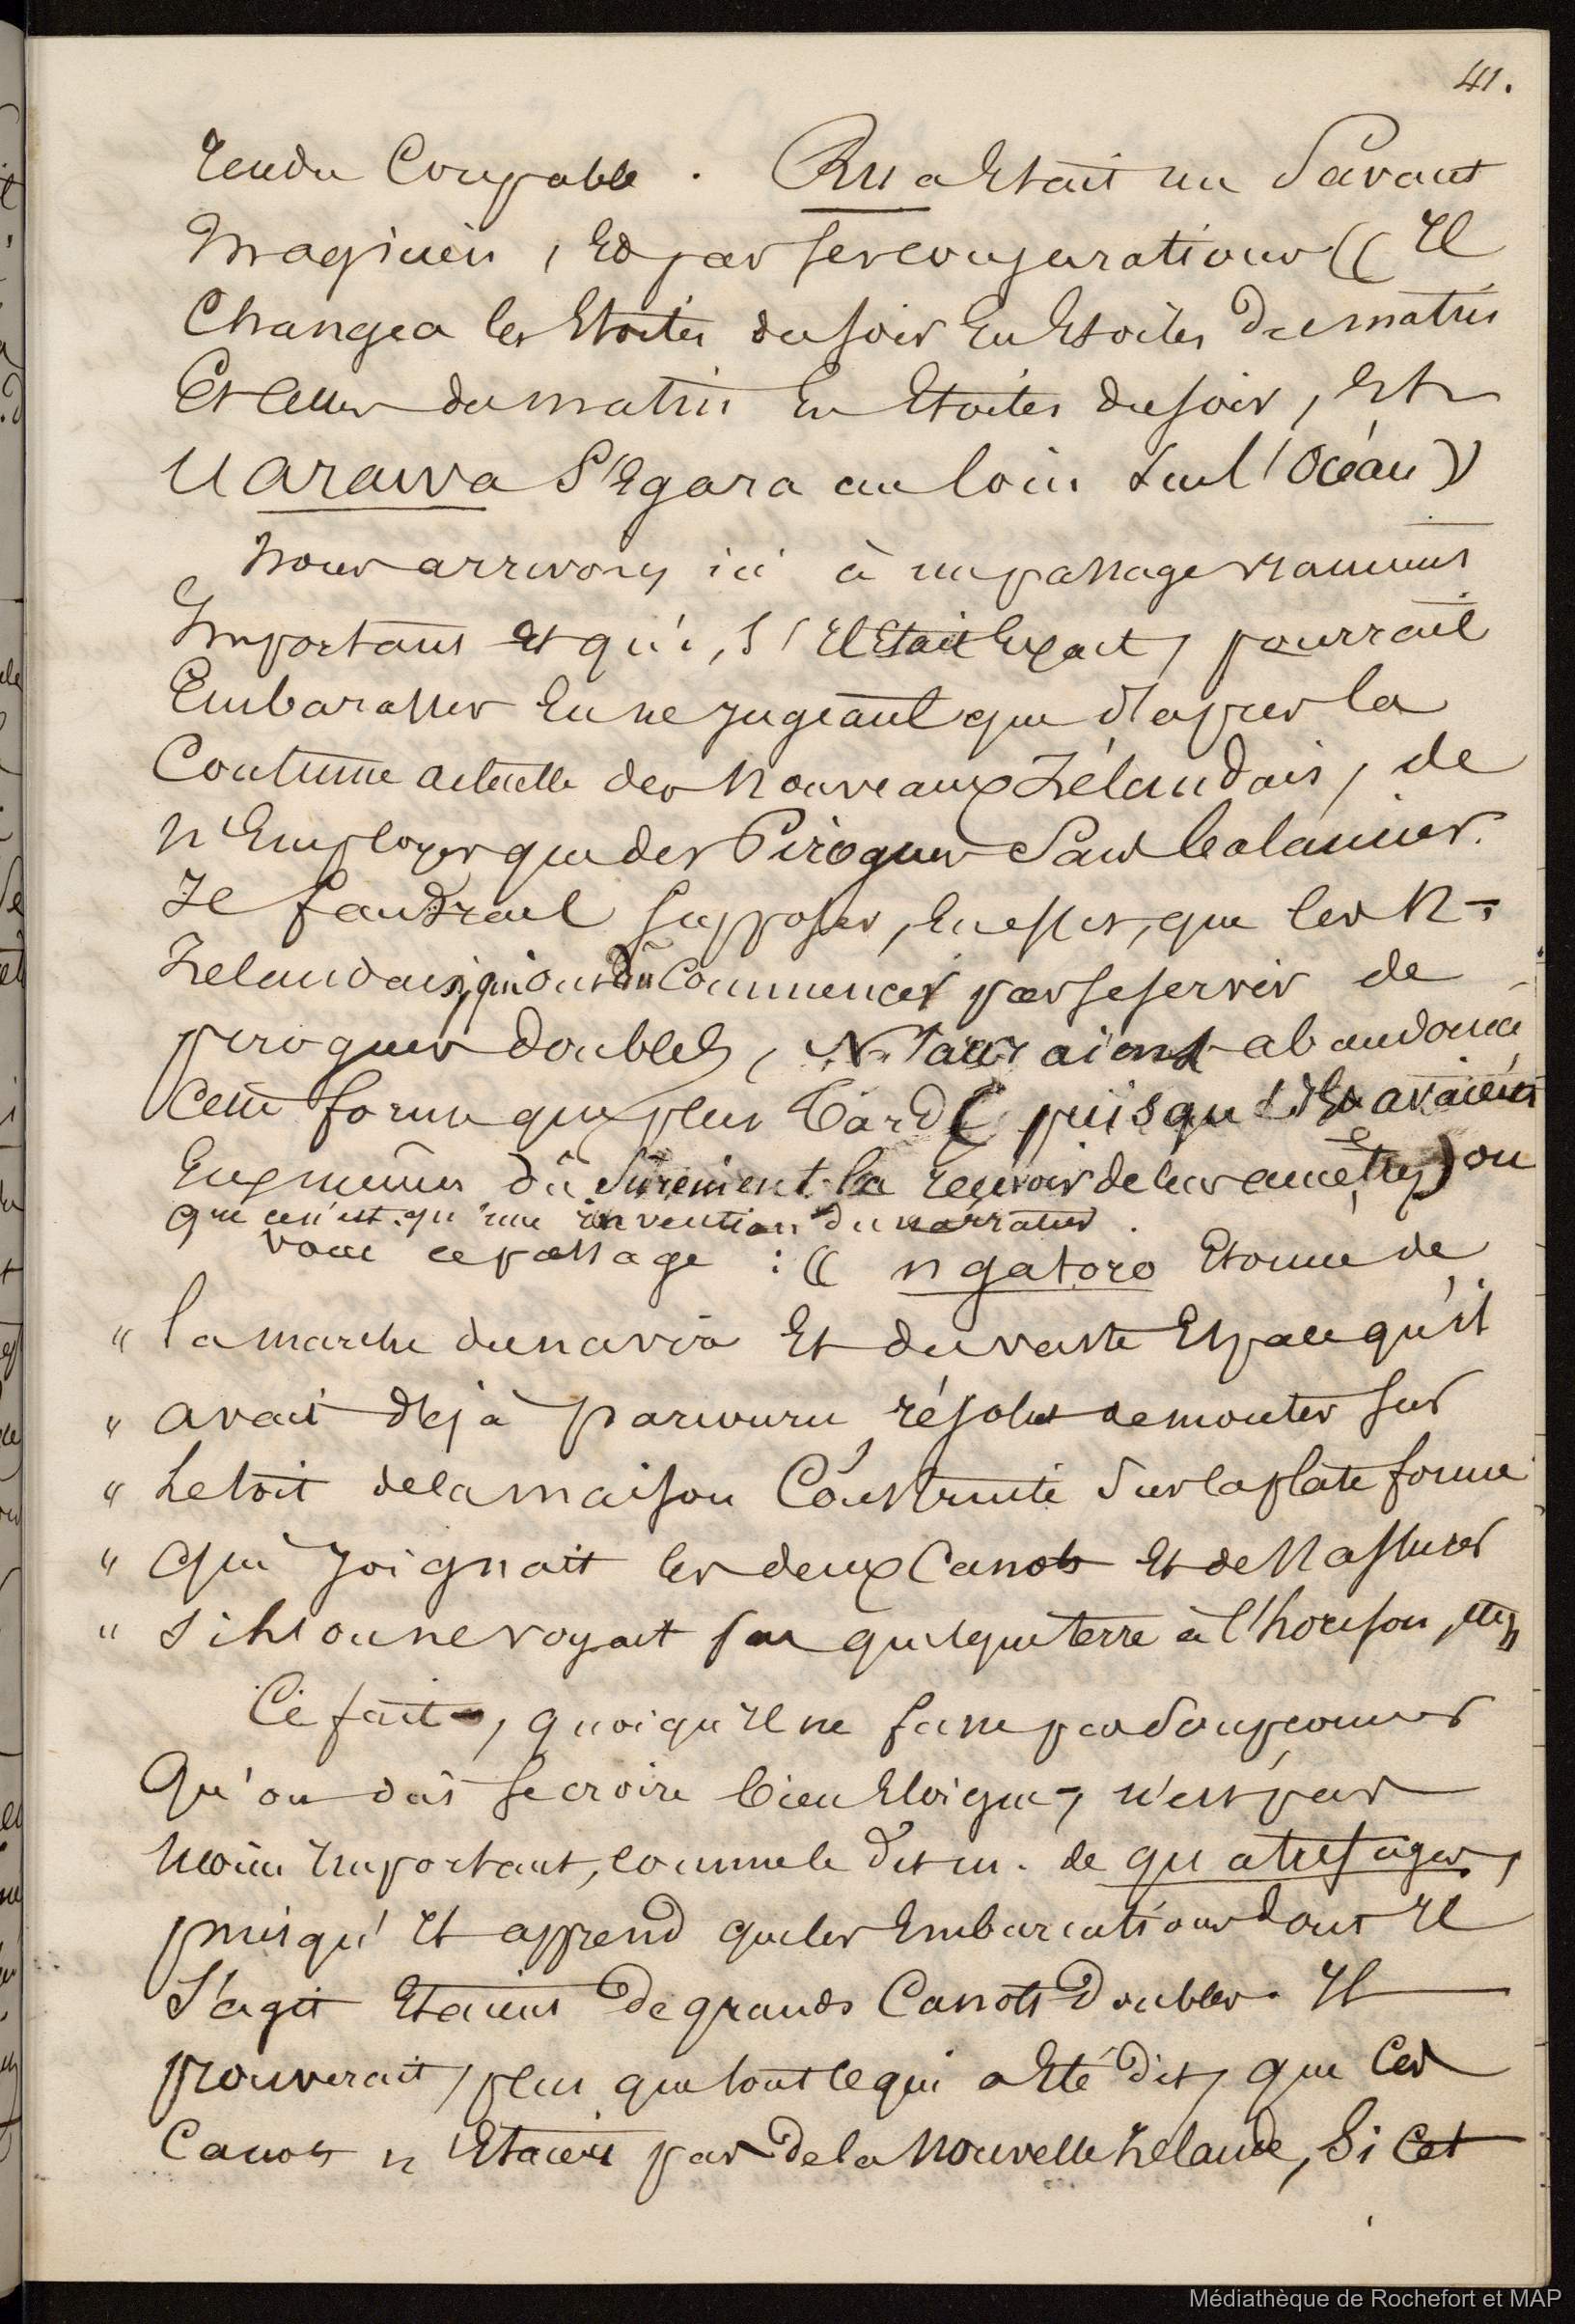 41.
rendu Coupable. Rua Etait un Savant
magicien, Et par ses conjurations (( Il
Changea les Etoiles du soir En Etoiles du matin
Et Celles du matin En Etoiles du soir, Et
l'Arawa S'Egara au loin sur l'Océan ))
Nous arrivons ici à un passage vraiment
Important Et qui, S'Il Etait Exact, pourrait
Embarasser En ne jugeant que d'après la
Coutume actuelle des Nouveaux Zélandais, de
n'Employer que des Pirogues Sans balancier.
Il faudrait supposer, En effet, que les N-
Zelandais, qui ont dû Commencer par se servir de
pirogues doubles, N'auraient abandonné
Cette forme que plus Tard ( puisqu'Ils avaient
Eux mêmes dû Sûrement la recevoir de leurs ancêtres) ou
que ce n'est qu'une invention du narrateur.
Voici ce passage : (( ngatoro Etonné de
" la marche du navire Et du vaste Espace qu'il
" avait déjà parcouru résolut de monter sur
" Le toit de la maison Construite Sur la plate forme
" qui joignait les deux Canots Et de s'assurer
" si l'on ne voyait pas quelque terre à l'horison, etc ))
Ce fait, quoiqu'Il ne fasse pas Soupçonner
Qu'on dût se croire bien Eloigné, n'est pas
moins Important, comme le dit m. de quatrefages,
puisqu'Il apprend que les Embarcations dont Il
S'agit Etaient De grands Canots Doubles. Il
prouverait, plus que tout ce qui a Eté Dit, que Ces
Canots n'Etaient pas De la Nouvelle Zelande, Si Cet
Médiathèque de Rochefort et MAP